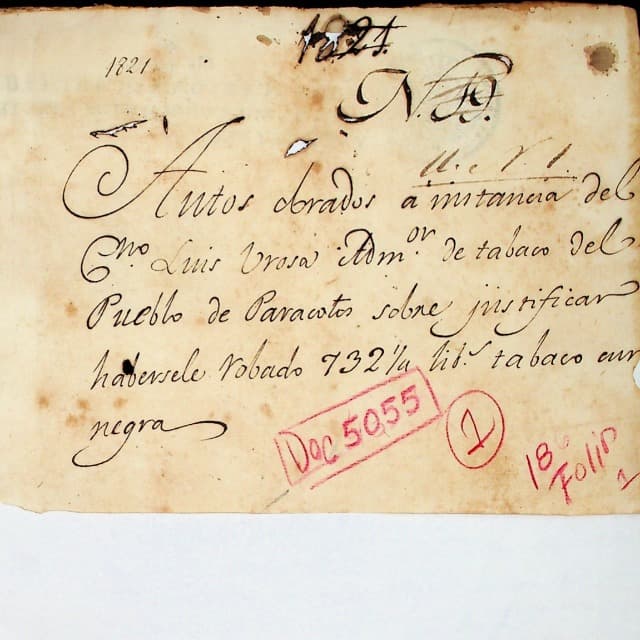 1821
1821
N. 19.
Autos obrados a instancia del
Cno Luis Urosa Admor de tabaco del
Pueblo de Paracotos sobre justificar
habersele robado 732 1/4 libs tabaco cur
negra
Doc 5055
1
18
Folios
1